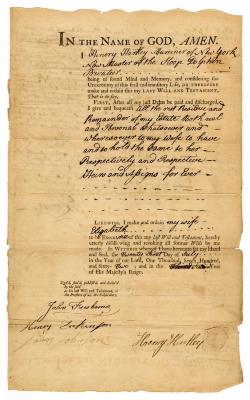 IN THE NAME OF GOD, AMEN.
I Henery Mariner of New York
Now Master of the Sloop Dolphin
Privateer
being of sound Mind and Memory, and considering the
Uncertainty of this frail and transitory Life, DO THEREFORE
make and ordain this my LAST WILL AND TESTAMENT,
That is to say,
FIRST, After all my just Debts be paid and discharged,
I give and bequeath All the rest Residue and
Remainder of my Estate Both real
and Personal Whatsoever and
Wheresoever to my Wife to have
and to hold the Same to her
Respectively and Respective
Heirs and Assigns for Ever
LIKEWISE, I make and ordain my wife
Elizabeth
to be EXECUTOR of this my last Will and Testament, hereby
utterly disallowing and revoking all former Wills by me
made. In WITNESS whereof I have hereunto set my Hand
and Seal, the Day of July
in the Year of our Lord, One Thousand, Seven Hundred,
and Sixty Two; and in the Year
of His Majesty's Reign.
Sign'd, seal'd, publish'd, and declar'd
by the said
as his last Will and Testament, in
the Presence of us, the Subscribers,
John
Henry Dickinson
James Johnson
Henry